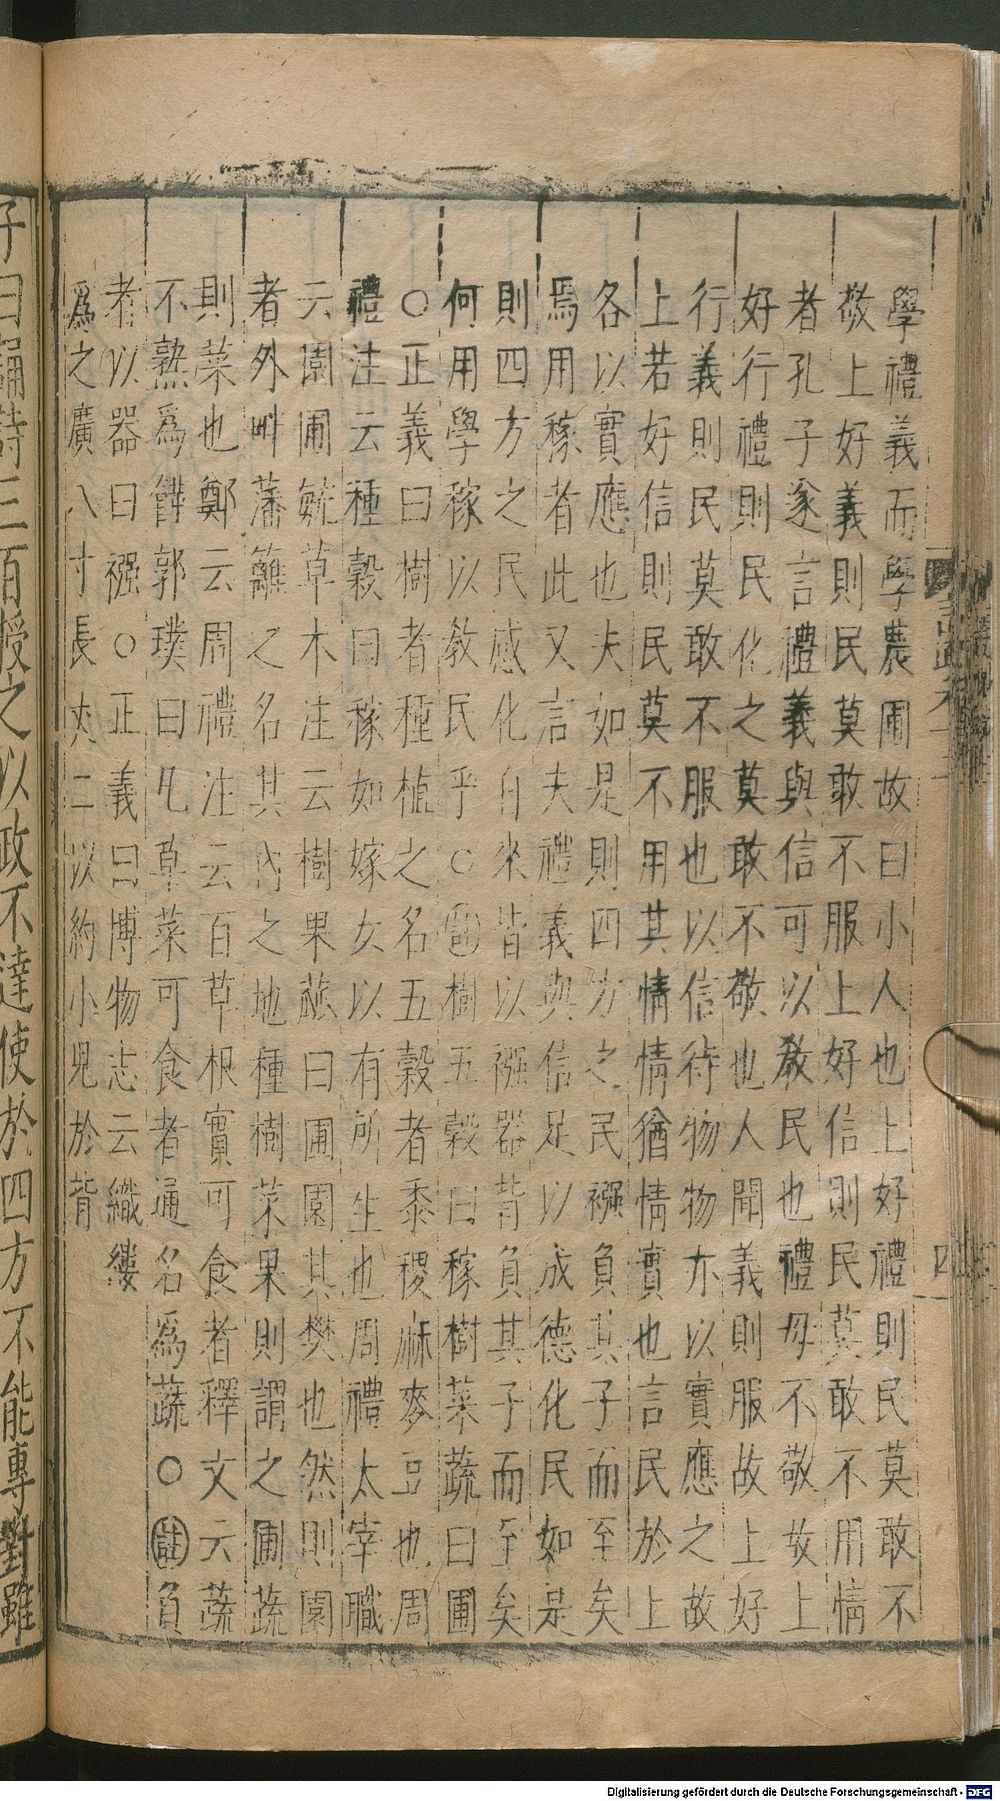 學禮義而學農圃故曰小人也上好禮則民莫敢不
敬上好義則民莫敢不服上好信則民莫敢不用情
者孔子遂言禮義與信可以教民也禮毋不敬故上
好行禮則民化之莫敢不敬也人聞義則服故上好
行義則民莫敢不服也以信待物物亦以實應之故
上若好信則民莫不用其情情猶情實也言民於上
各以實應也夫如是則四方之民襁負其子而至矣
焉用稼者此又言夫禮義與信足以成德化民如是
則四方之民感化自來皆以襁器背負其子而至矣
何用學稼以教民乎○註樹五穀曰稼樹菜蔬曰圃
○正義曰樹者種植之名五穀者黍稷麻麥豆也周
禮注云種穀曰稼如嫁女以有所生也周禮太宰職
云園圃毓草木注云樹果蓏曰圃園其樊也然則園
者外畔藩籬之名其內之地種樹菜果則謂之圃蔬
則菜也鄭云周禮注云百草根實可食者釋文云蔬
不熟為饉郭璞曰凡草菜可食者通名為蔬○註負
者以器曰襁○正義曰博物志云織縷
為之廣八寸長丈二以約小兒於背
子曰誦詩三百授之以政不達使於四方不能專對雖
四
Digitalisierung gefördert durch die Deutsche Forschungsgemeinschaft - DFG